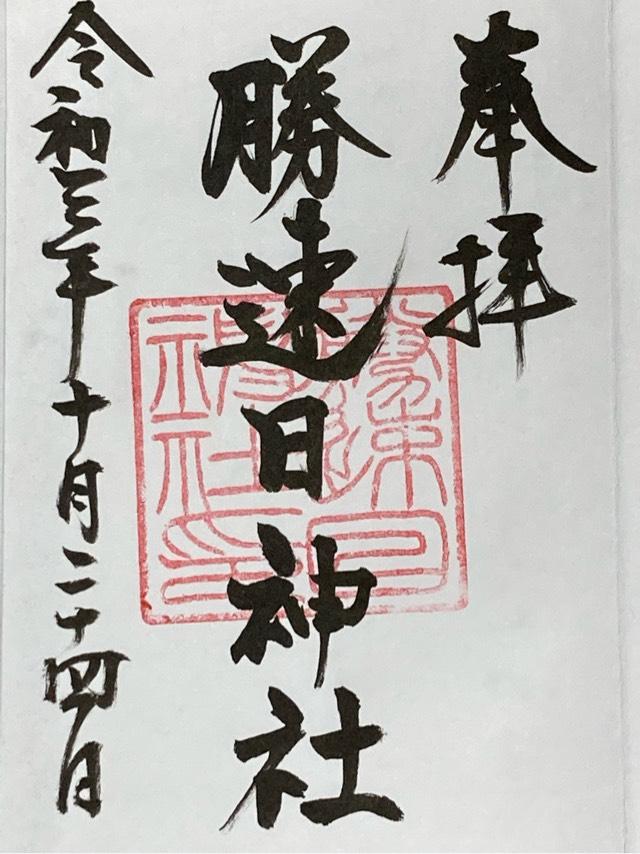 奉拝
勝速日神社
令和三年十月二十四日